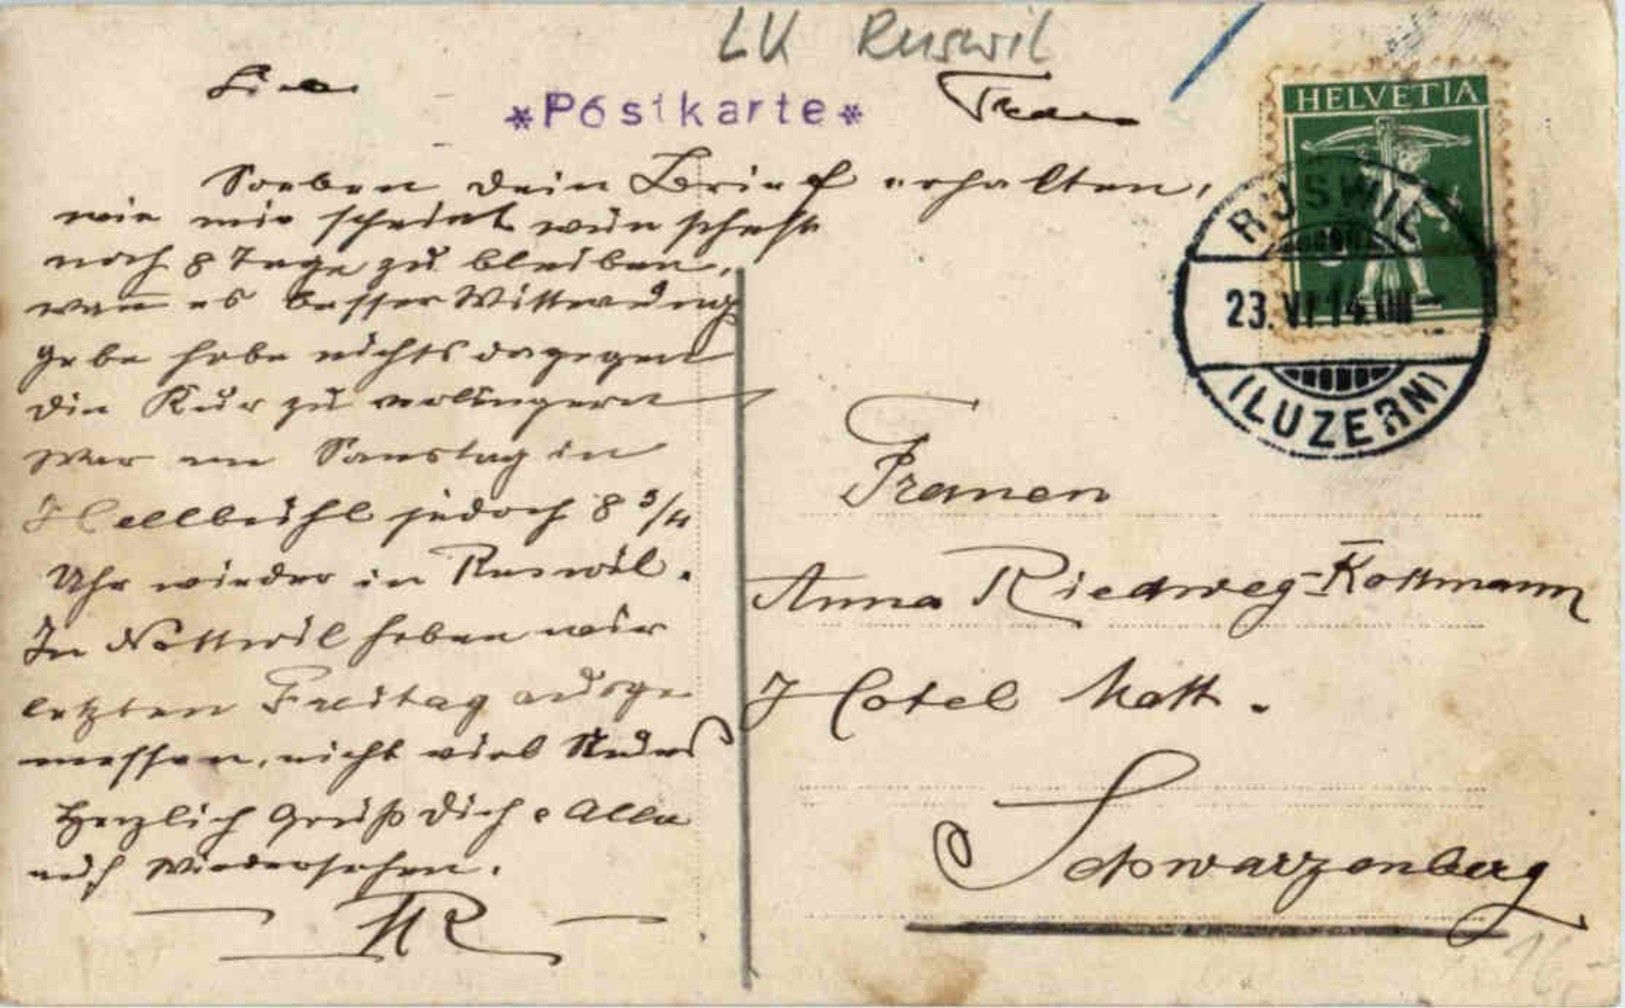 LK Ruswil
*Postkarte*
Soeben dein Brief erhalten,
wie mir scheint wünschest
noch 8 Tage zu bleiben,
wenn es besser Witterung
gebe habe nichts dagegen
die Kur zu verlängern
War am Samstag in
Hellbühl jedoch 8 3/4
Uhr wieder in Ruswil.
In Nottwil haben wir
letzten Freitag ausge
messen, nicht viel Neues
Herzlich Grüß dich & Alle
auf Wiedersehen.
HELVETIA
RUSWIL
23.VI.14.
(LUZERN)
Frauen
Anna Riedweg-Kottmann
Hotel Matt.
Schwarzenberg